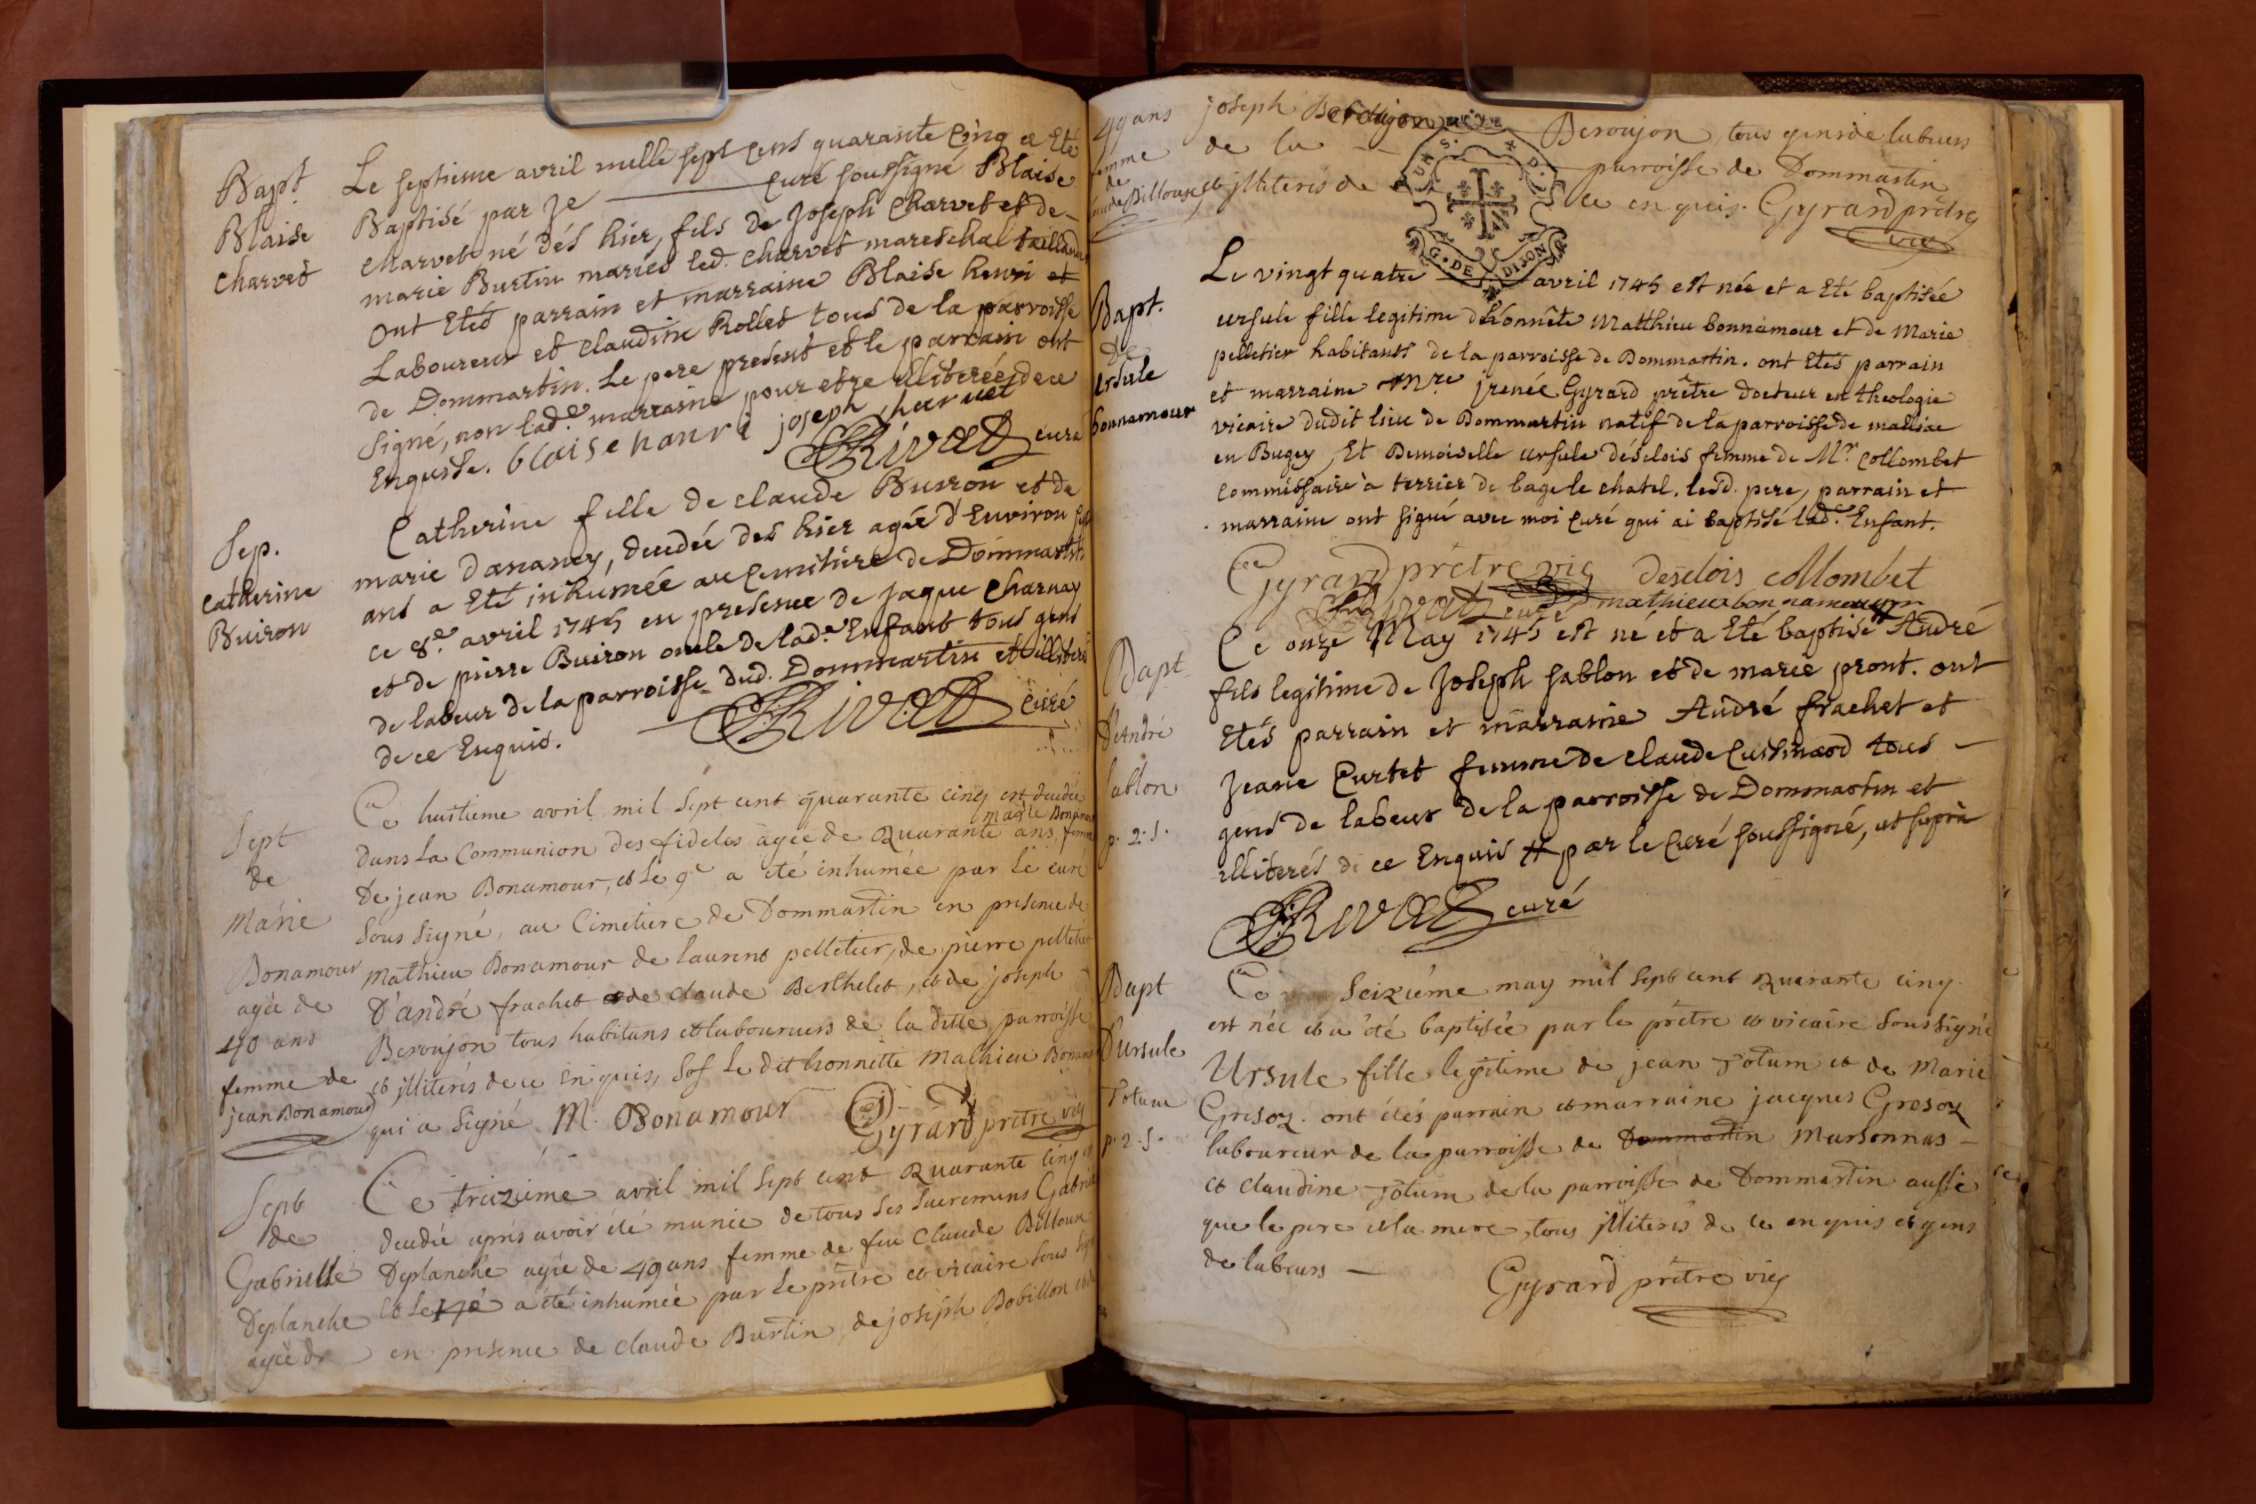 Bapt
Blaise
Charvet
Le septieme avril mille sept cens quarante Cinq a Eté
Baptisé par Je curé soussigné Blaise
Charvet né dés hier, fils de Joseph Charvet et de
marie Burtin mariés led. Charvet mareschal taillandi
Ont Etés parrain et marraine Blaise henri et
Laboureur et claudine Rollet tous de la parroisse
de Dommartin. Le pere present et le parrain ont
Signé, non lad.e marraine pour etre illiterée, de ce
Enquise. blaise hanri joseph charvet
JRivat curé
Sep.
Catherine
Buiron
Catherine fille de claude Buiron et de
marie Dananey, decedée des hier agée d'Environ
ans a Eté inhumée au Cemitiere de Dommartin
ce 8.e avril 1745 en presence de Jaque Charnay
et de pierre Buiron oncle de lad.e Enfant tous gens
de labeur de la parroisse dud. Dommartin et illiterés
de ce Enquis. JRivat Curé
Sept
de
Marie
Bonamour
agée de
40 ans
femme de
jean Bonamour
Ce huitieme avril mil sept cent quarante cinq est decedée
marie Bonamour
dans la Communion des fideles agée de Quarante ans, femme
De jean Bonamour, et le 9e a été inhumée par le curé
Sous signé, au Cimetiere de Dommartin en presence de
Mathieu Bonamour de laurent pelletier, de pierre pelletier
D'andré frachet et de claude Berthelet, et de joseph
Beroujon tous habitans et laboureurs de la ditte parroisse
et jlliterés de ce Enquis, Sof le dit honnette Mathieu Bonam
qui a signé M. Bonamour Gyrard prêtre vic
Sept
de
Gabrielle
Deplanche
agée de
Ce treizième avril mil sept cent Quarante Cinq
decedée aprés avoir été munie de tous ses sacremens Gabrielle
Deplanche agée de 49 ans femme de feu Claude Billoux
et le a été inhumée par le prêtre et vicaire sous
en presence de claude Burtin, de joseph Bobillon
49 ans
femme
de
Claude Billoux
joseph Beroujon Beroujon, tous gens de labeurs
de la parroisse de Dommartin
et jlliterés de ce enquis. Gyrard prêtre
vic
G. DE DIJON
Bapt.
De
Ursule
bonnamour
Le vingt quatre avril 1745 est née et a Eté baptisée
ursule fille legitime d'honnête Matthieu bonnamour et de Marie
pelletier habitants de la parroisse de Dommartin. ont Etés parrain
et marraine Mre jrenée Gyrard prêtre docteur en theologie
vicaire dudit lieu de Dommartin natif de la parroisse de
en Bugey, Et Demoiselle ursule désclois femme de Mr. Collombet
Commissaire à terrier de bage le chatel. lesd. pere, parrain et
marraine ont signé avec moi curé qui ai baptisé lad.e Enfant.
Gyrard prêtre vic desclois collombet
JRivat curé mathieu bonnamour
Bapt
D'André
Sablon
p. 2. s.
Ce onze May 1745 est né et a Eté baptisé André
fils legitime de Joseph sablon et de marie pront. ont
Etés parrain et marraine André frachet et
Jeane Curtet femme de claude Cuismard tous
gens de labeur de la parroisse de Dommartin et
illiterés de ce Enquis par le Curé soussigné, ut suprà
JRivat curé
Bapt
D'ursule
Totum
p. 2. s.
Ce seizième may mil sept cent Quarante cinq
est née et a été baptisée par le prêtre et vicaire Soussigné
Ursule fille legitime de jean Totum et de Marie
Gresoz. ont étés parrain et marraine jacques Gresoz
laboureur de la parroisse de Dommartin Marsonnas
et claudine Totum de la parroisse de Dommartin aussi
que le pere et la mere, tous jlliterés de ce enquis et gens
de labeurs
Gyrard prêtre vic